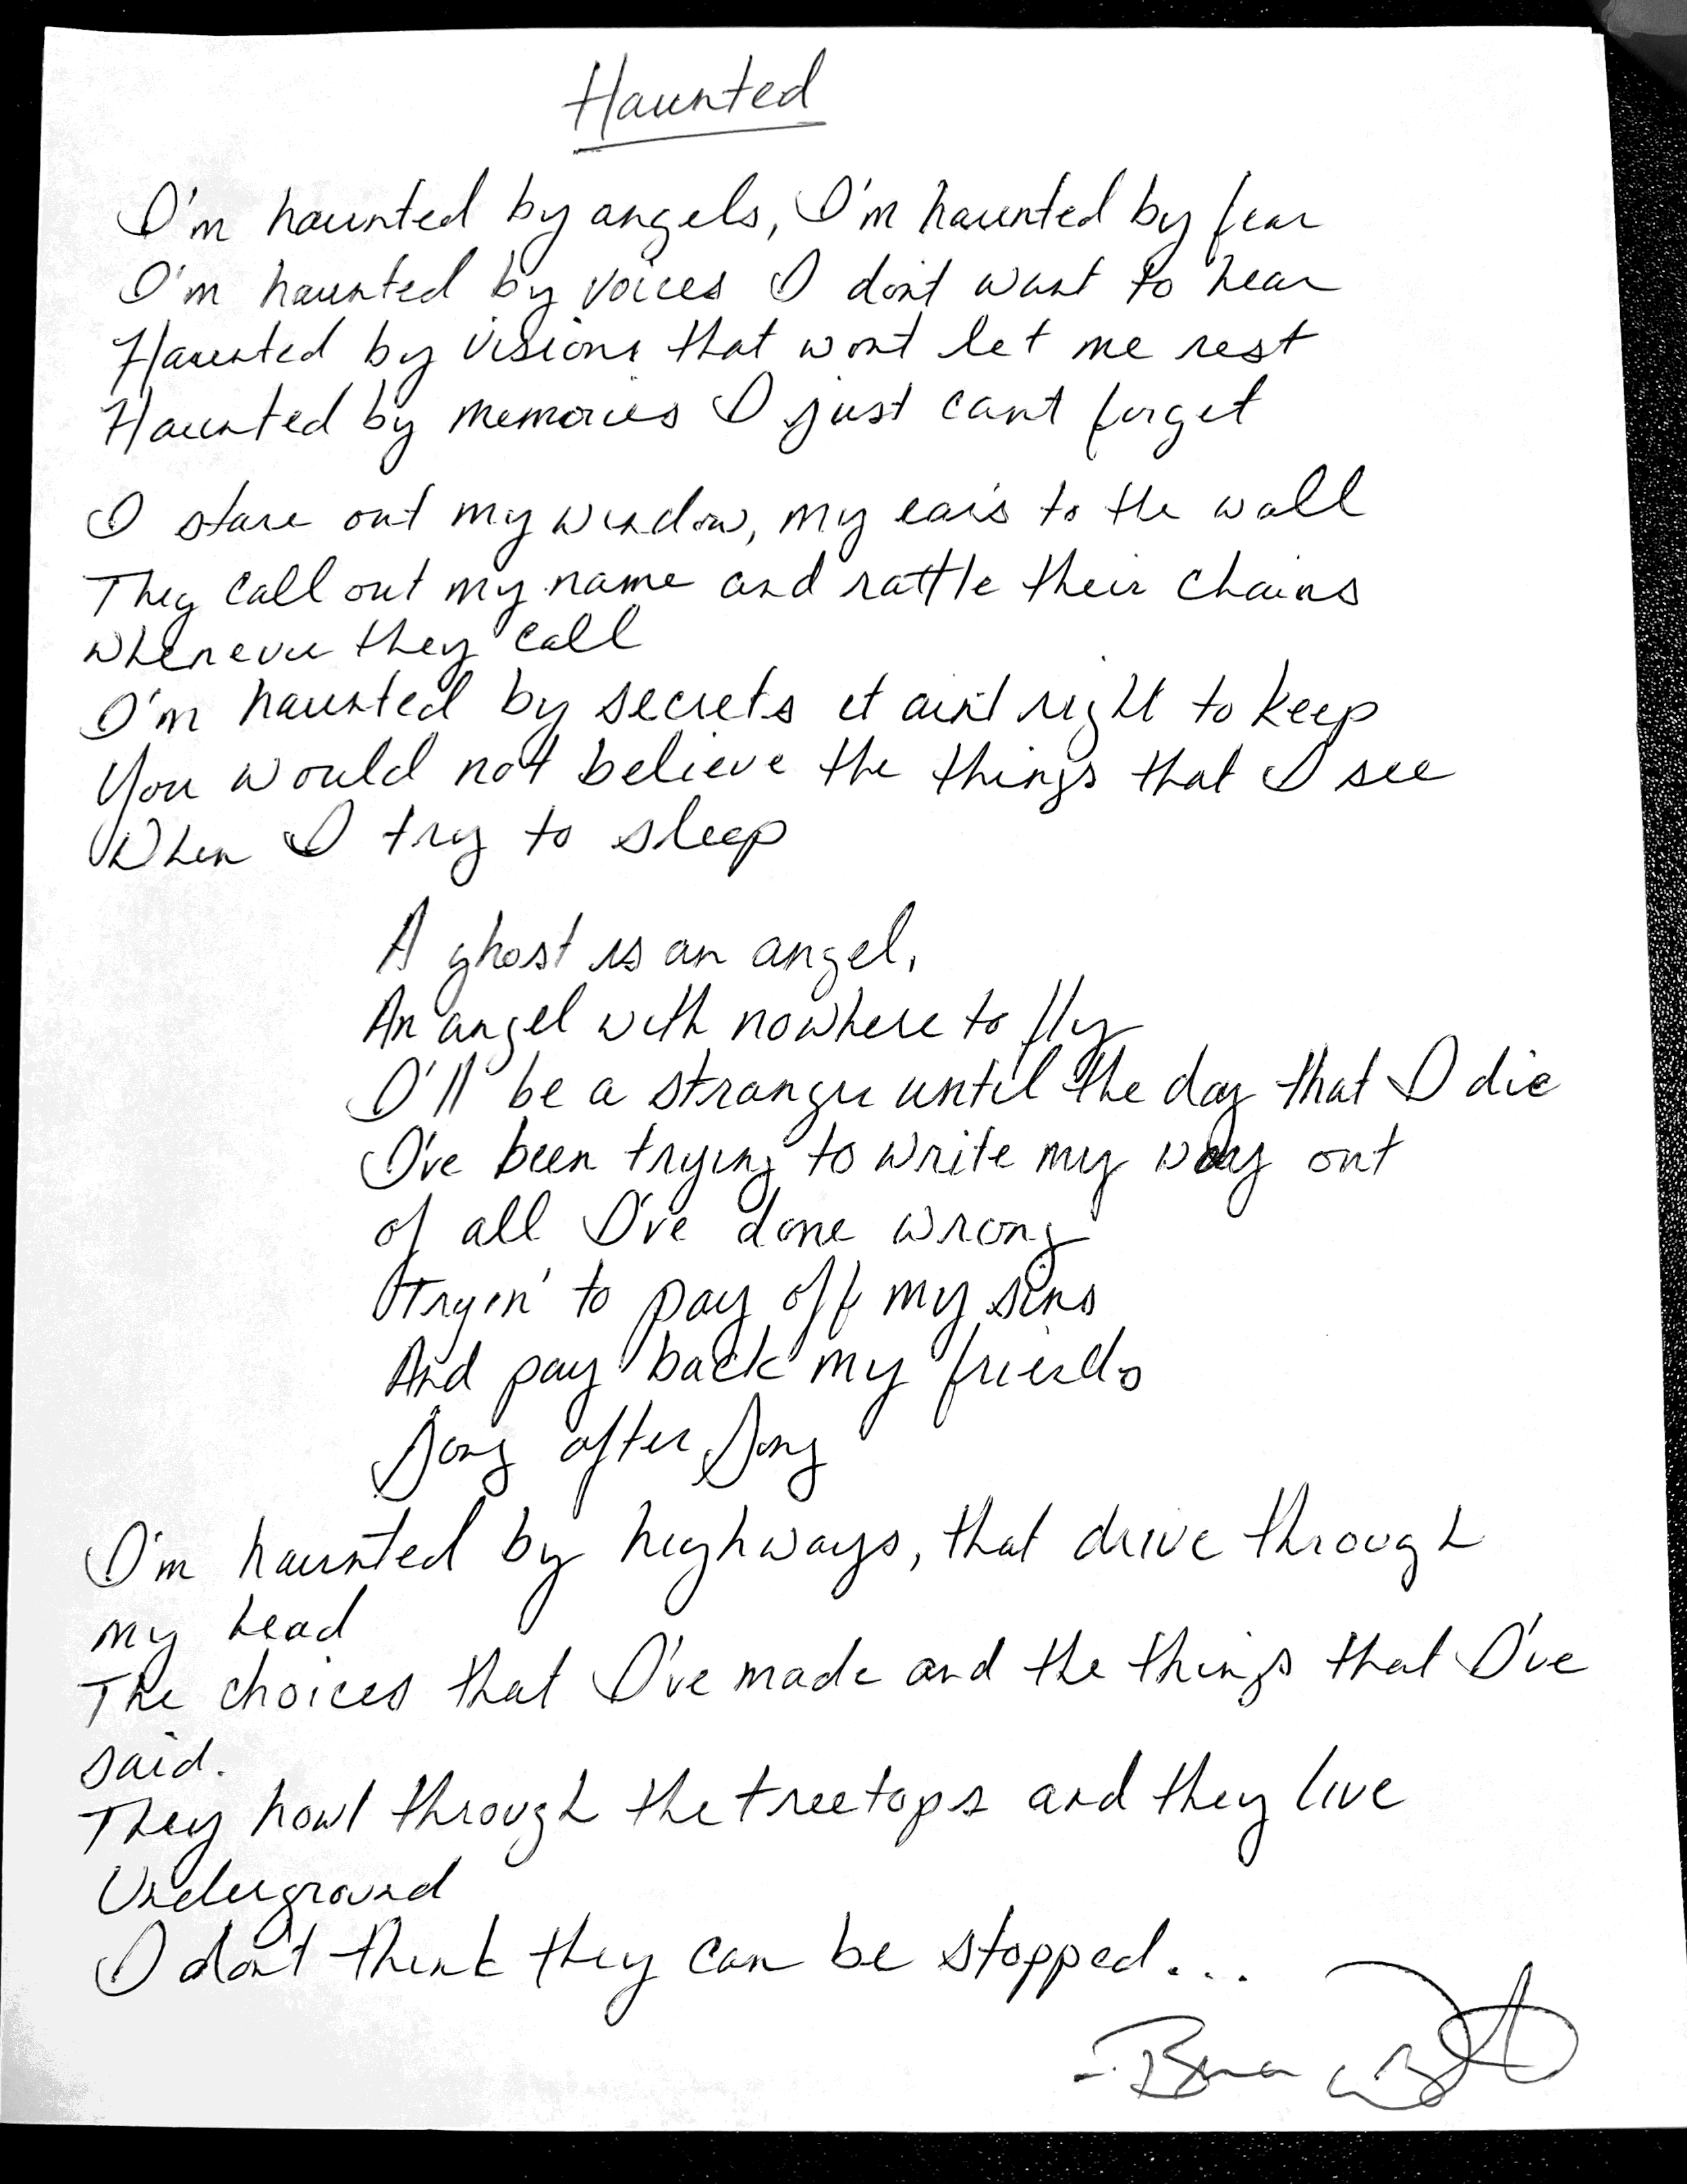 Haunted
I'm haunted by angels, I'm haunted by fear
I'm haunted by voices I don't want to hear
Haunted by visions that wont let me rest
Haunted by memories I just cant forget
I stare out my window, my ear's to the wall
They call out my name and rattle their chains
whenever they call
I'm haunted by secrets it ain't right to keep
You would not believe the things that I see
When I try to sleep
A ghost is an angel,
An angel with nowhere to fly
I'll be a stranger until the day that I die
I've been trying to write my way out
of all I've done wrong
Tryin' to pay off my sins
And pay back my friends
Song after Song
I'm haunted by highways, that drive through
my head
The choices that I've made and the things that I've
said.
They howl through the treetops and they live
Underground
I don't think they can be stopped...